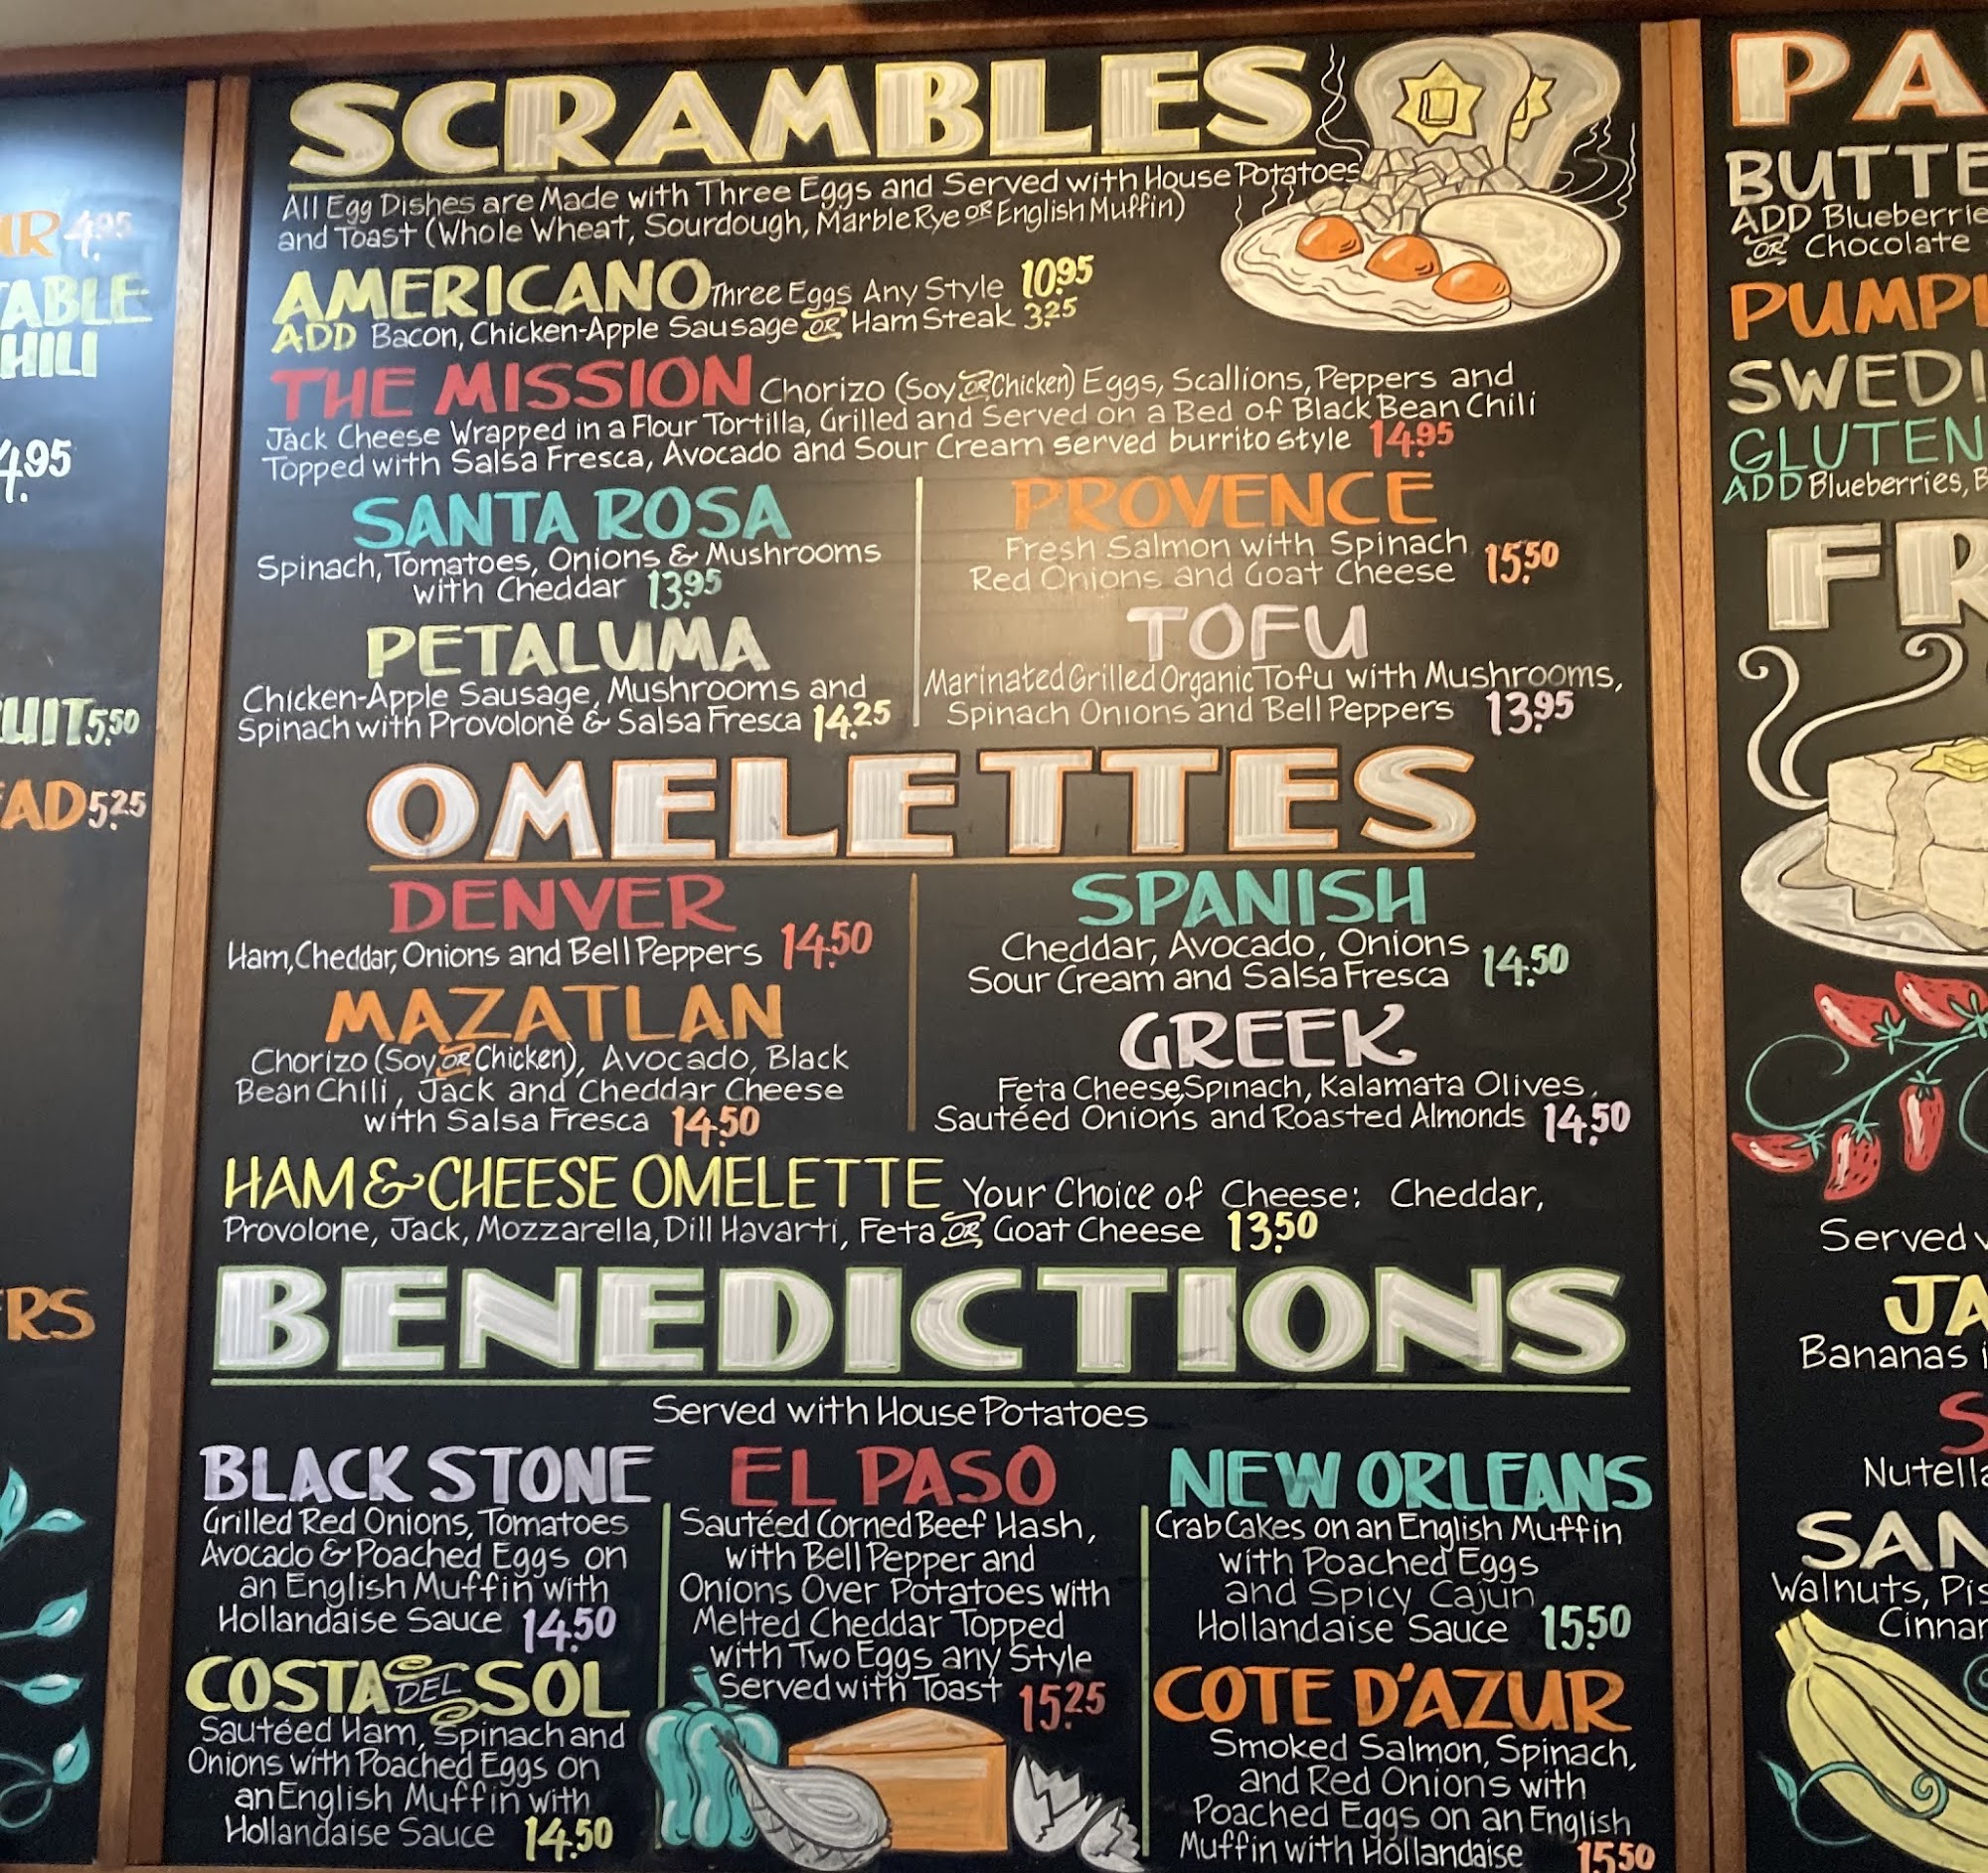 SCRAMBLES
All Egg Dishes are Made with Three Eggs and Served with House Potatoes
and Toast (Whole Wheat, Sourdough, Marble Rye OR English Muffin)
AMERICANO Three Eggs Any Style 10.95
ADD Bacon, Chicken-Apple Sausage OR Ham Steak 3.25
THE MISSION Chorizo (Soy OR Chicken) Eggs, Scallions, Peppers and
Jack Cheese Wrapped in a Flour Tortilla, Grilled and Served on a Bed of Black Bean Chili
Topped with Salsa Fresca, Avocado and Sour Cream served burrito style 14.95
SANTA ROSA
Spinach, Tomatoes, Onions & Mushrooms
with Cheddar 13.95
PETALUMA
Chicken-Apple Sausage, Mushrooms and
Spinach with Provolone & Salsa Fresca 14.25
PROVENCE
Fresh Salmon with Spinach,
Red Onions and Goat Cheese 15.50
TOFU
Marinated Grilled Organic Tofu with Mushrooms,
Spinach Onions and Bell Peppers 13.95
OMELETTES
DENVER
Ham, Cheddar, Onions and Bell Peppers 14.50
MAZATLAN
Chorizo (Soy OR Chicken), Avocado, Black
Bean Chili, Jack and Cheddar Cheese
with Salsa Fresca 14.50
SPANISH
Cheddar, Avocado, Onions
Sour Cream and Salsa Fresca 14.50
GREEK
Feta Cheese, Spinach, Kalamata Olives,
Sautéed Onions and Roasted Almonds 14.50
HAM & CHEESE OMELETTE Your Choice of Cheese: Cheddar,
Provolone, Jack, Mozzarella, Dill Havarti, Feta OR Goat Cheese 13.50
BENEDICTIONS
Served with House Potatoes
BLACK STONE
Grilled Red Onions, Tomatoes
Avocado & Poached Eggs on
an English Muffin with
Hollandaise Sauce 14.50
COSTA DEL SOL
Sautéed Ham, Spinach and
Onions with Poached Eggs on
an English Muffin with
Hollandaise Sauce 14.50
EL PASO
Sautéed Corned Beef Hash,
with Bell Pepper and
Onions Over Potatoes with
Melted Cheddar Topped
with Two Eggs any Style
Served with Toast 15.25
NEW ORLEANS
Crab Cakes on an English Muffin
with Poached Eggs
and Spicy Cajun
Hollandaise Sauce 15.50
COTE D'AZUR
Smoked Salmon, Spinach,
and Red Onions with
Poached Eggs on an English
Muffin with Hollandaise 15.50
4.95
HILI
4.95
5.50
5.25
RS
PA
BUTTE
ADD Blueberrie
OR Chocolate
PUMP
SWEDI
GLUTEN
ADD Blueberries, B
FR
Served
JA
Bananas
S
Nutell
SAN
Walnuts, Pis
Cinnar